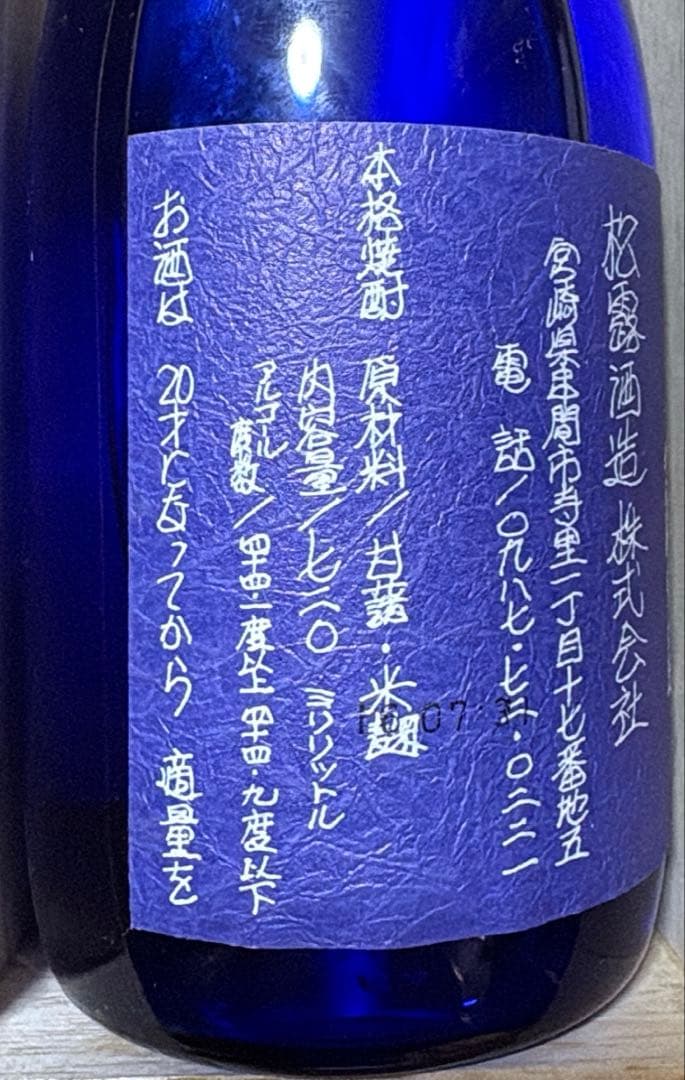 松露酒造株式会社
宮崎県串間市寺里一丁目十七番地五
電話/〇九八七・七二・〇二二一
本格焼酎 原材料/甘藷・米麹
内容量/七二〇ミリリットル
アルコール度数/四四・一度以上四四・九度以下
お酒は 20才になってから 適量を
07 31